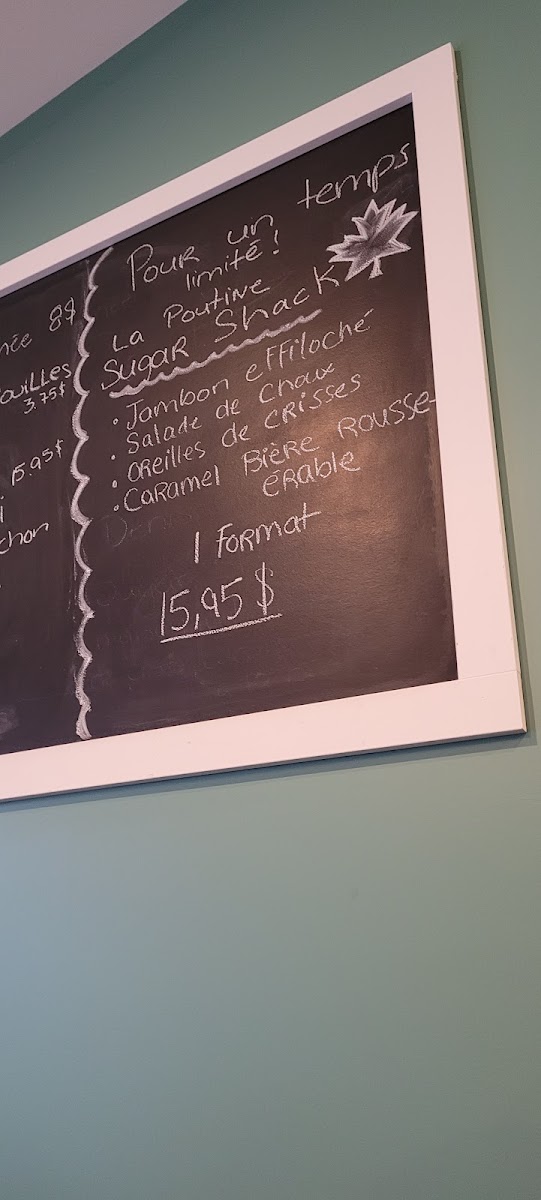 8$
ouilles
3.75$
15.95$
chon
Pour un temps
limité!
La Poutine
Sugar Shack
• Jambon effiloché
• Salade de chaux
• Oreilles de crisses
• Caramel Bière rousse
érable
1 Format
15,95 $